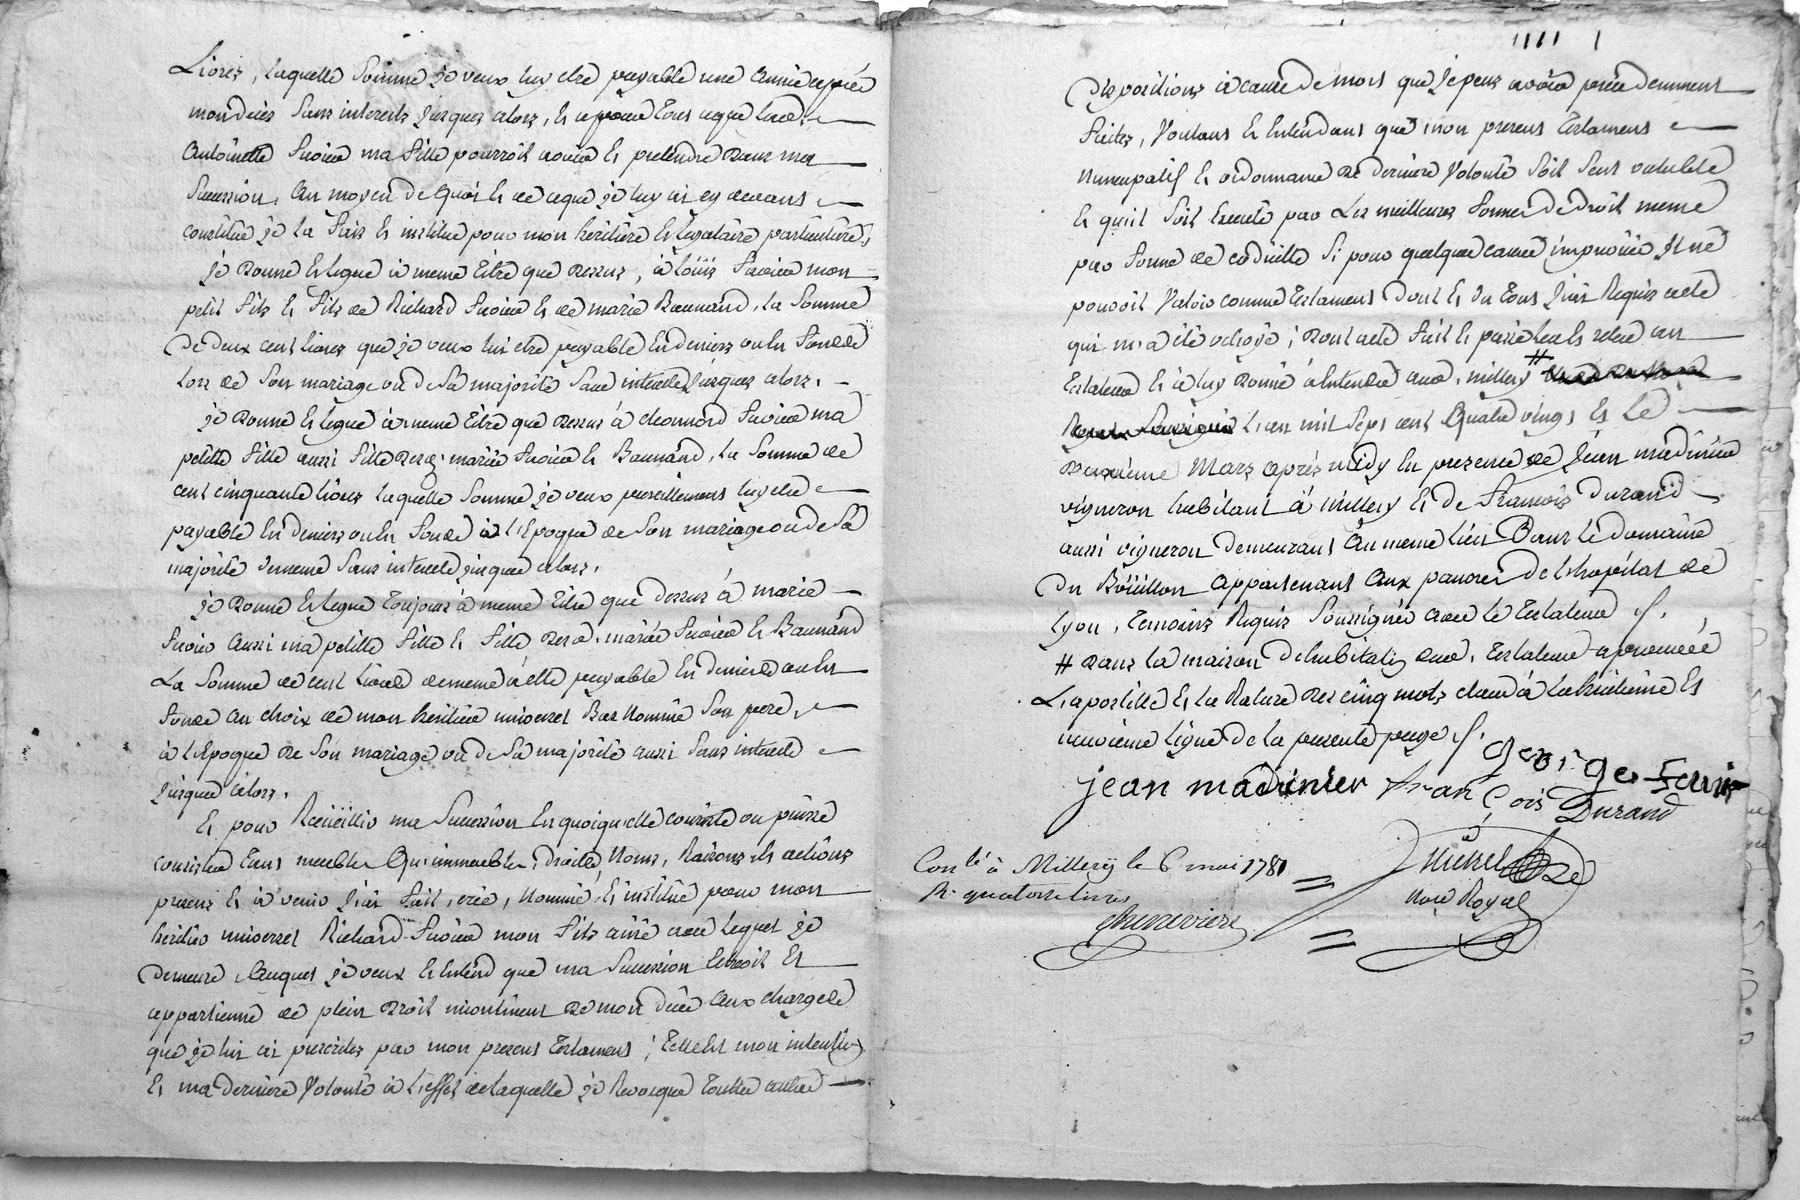 Livres, laquelle Somme je veux luy etre payable une année après
mon decès Sans interrests jusques alors, et ce pour tout ce que lad.
Antoinette Favier ma fille pourroit avoir et pretendre dans ma
Succession, au moyen de quoi et de ceque je luy ai cy devant
constitué je la fais et institue pour mon heritière et legataire particulière,
je donne et legue à meme titre que dessus, à Loüis Favier mon
petit fils et fils de Richard Favier et de marie Baumand, la Somme
de deux cent livres que je veux lui etre payable en deniers ou en fonds
lors de Son mariage ou de Sa majorité Sans interets jusques alors.
je donne et legue à meme titre que dessus à Favier ma
petitte fille aussi fille desd. mariés Favier et Baumand, la Somme de
cent cinquante livres laquelle Somme je veux pareillement luy etre
payable en deniers ou en fonds à l'Epoque de Son mariage ou de Sa
majorité demême Sans interets jusques alors.
je donne et legue toujours à meme titre que dessus à marie
Favier aussi ma petitte fille et fille desd. mariés Favier et Baumand
La Somme de cent livres demême à elle payable en deniers ou en
fonds au choix de mon heritier universel Bas Nommé Son pere,
à l'Epoque de Son mariage ou de Sa majorité aussi Sans interets
jusques alors.
Et pour Recüeillir ma Succession en quoiqu'elle consiste ou puisse
consister tant meubles qu'immeubles, droits, Noms, Raisons et actions
presens et à venir j'ai fait, créé, Nommé, et institué pour mon
heritier universel Richard Favier mon fils ainé avec lequel je
demeure, auquel je veux et entend que ma Succession Echoit et
appartienne de plein droit incontinent de mon decès aux charges
que je lui ai prescrites par mon present testament; telle est mon intention
et ma dernière Volonté à l'effet de laquelle je Revocque toutte autre
dispositions à cause de mort que je peux avoir précédemment
faites, Voulant et Entendant que mon present testament
nuncupatif et ordonnance de dernière Volonté Soit Seul valable
et qu'il Soit Executé par les meilleures formes de droit meme
par forme de codicille Si pour quelque cause imprévüe il ne
pouvoit Valoir comme testament dont et du tout j'ai Requis acte
qui m'a été octroyé; dont acte fait et passé Leu et relu au
Testateur et à luy donné à Entendre aud. millery #
L'an mil Sept cent quatre vingt et Le
deuxieme Mars après midy en presence de Jean madinier
vigneron habitant à Millery et de François durand
aussi vigneron demeurant au meme lieu Dans le domaine
du Boüillon appartenant aux pauvres de l'hopital de
Lyon, témoins Requis Soussignés avec le Testateur /.
# dans la maison d'habitation dud. Testateur aprouvée
L'apostille et la Rature des cinq mots dans la huitième et
neuvième ligne de la presente page /.
george favier
jean madinier françois Durand
Con lé à Millery le 6 mai 1780
R. quatorze livres
Nore Royal